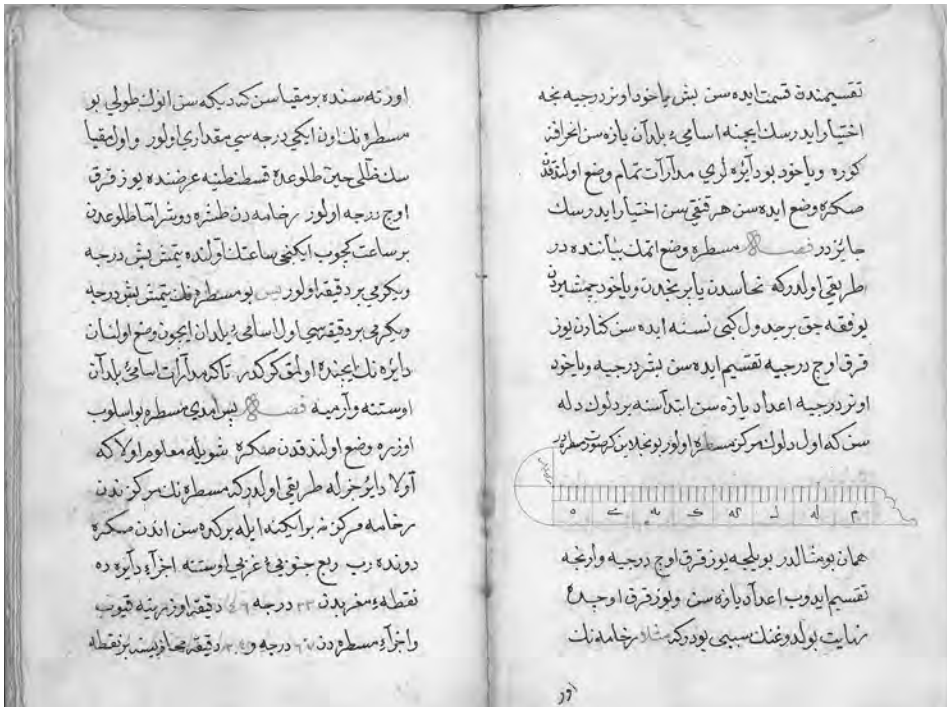 تقسيمنده قسمت ايده سن بش ياخود اونر درجيه نجه
اختيار ايدرسك ايچنه اسامىء بلدان يازه سن انحرافن
كوره وياخود بو دايره لرى مدارات تمام وضع اولندقدن
صكره وضع ايده سن هر قنغىسن اختيار ايدرسك
جايزدر فصل مسطره وضع اتمك بياننده در
طريقى اولدركه نحاسدن يا برنجدن وياخود
يوفقه جق بر جدول كبى نسنه ايده سن كنارن يوز
قرق اوچ درجيه تقسيم ايده سن بشر درجيه وياخود
اونر درجيه اعداد يازه سن ابتداسنه بر دلوك دله
سن كه اول دلوك مركز مسطره اولور بو
ه ى يه ك كه ل له م
همان بو مثالدر بويلجه يوز قرق اوچ درجيه وارنجه
تقسيم ايدوب اعداد يازه سن ويوز قرق اوچده
نهايت بولدوغنك سببى بودركه مثلا رخامه نك
اور
اورته سنده بر مقياس كه ديكه سن انوك طولى بو
مسطره نك اون ايكى درجه سى مقدارى اولور و اول مقيا
سك ظللى حين طلوعده قسطنطنيه عرضنده يوز قرق
اوچ درجه اولور رخامه دن طشره دوشر اما طلوعدن
بر ساعت كچوب ايكنجى ساعتك اولنده يتمش بش درجه
ويكرمى بر دقيقه اولور پس بو مسطره نك يتمش بش درجه
ويكرمى بر دقيقه سى اول اسامىء بلدان ايچون وضع اولنان
دايره نك ايچنده اولمق كركدر تاكه مدارات اسامىء بلدان
اوستنه وارميه فصل پس امدى مسطره بو اسلوب
اوزره وضع اولندقدن صكره شويله معلوم اولا كه
اولا دايره جزله طريقى اولدركه مسطره نك مركزندن
رخامه مركزنه بر ايكنه ايله بركده سن اندن صكره
دوندرب ربع جنوبىء غربى اوستنه اجزاء دايره ده
نقطهء مغربدن ٢٣ درجه دقيقه اوزرينه قيوب
واجزاء مسطره دن درجه و دقيقه محاذيسنه بر نقطه